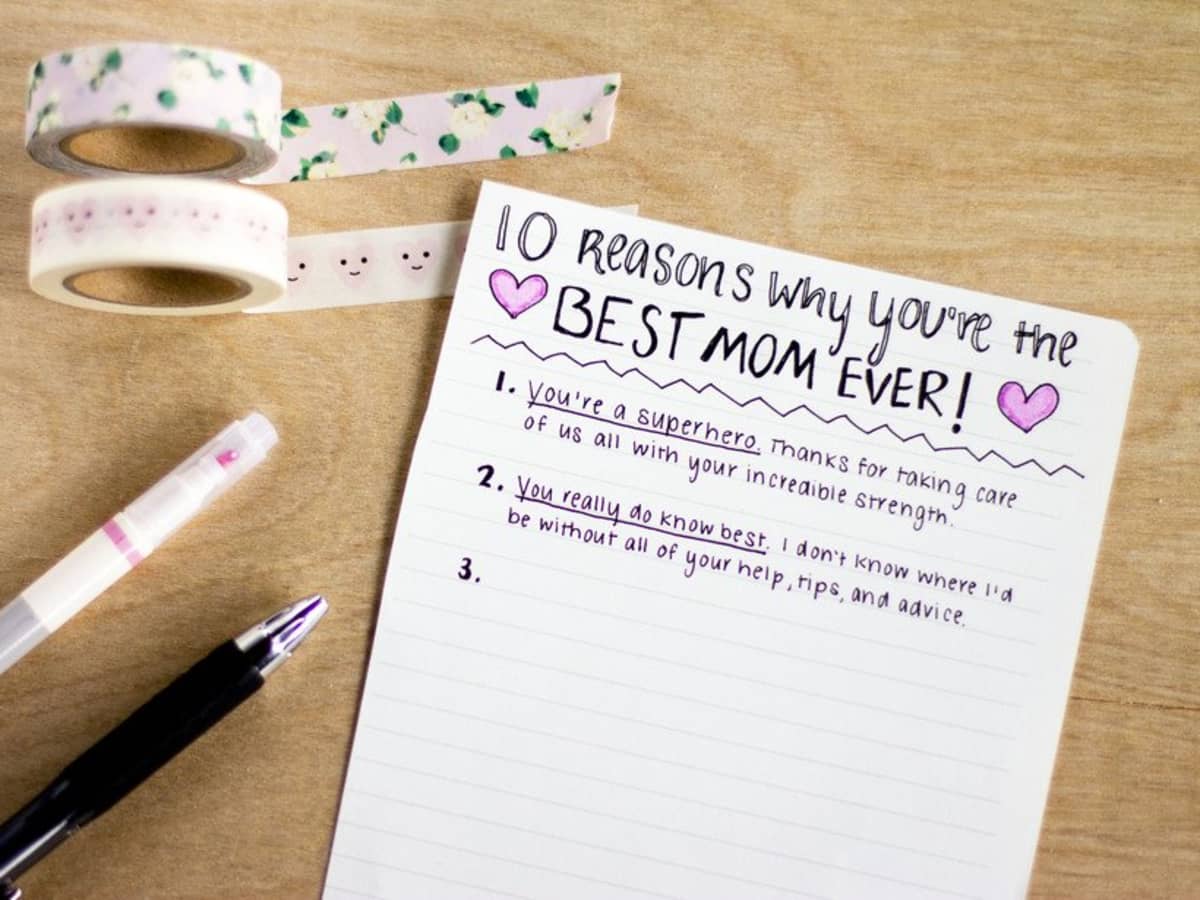 10 Reasons why you're the
BEST MOM EVER!
1. You're a superhero. Thanks for taking care
of us all with your incredible strength.
2. You really do know best. I don't know where I'd
be without all of your help, tips, and advice.
3.